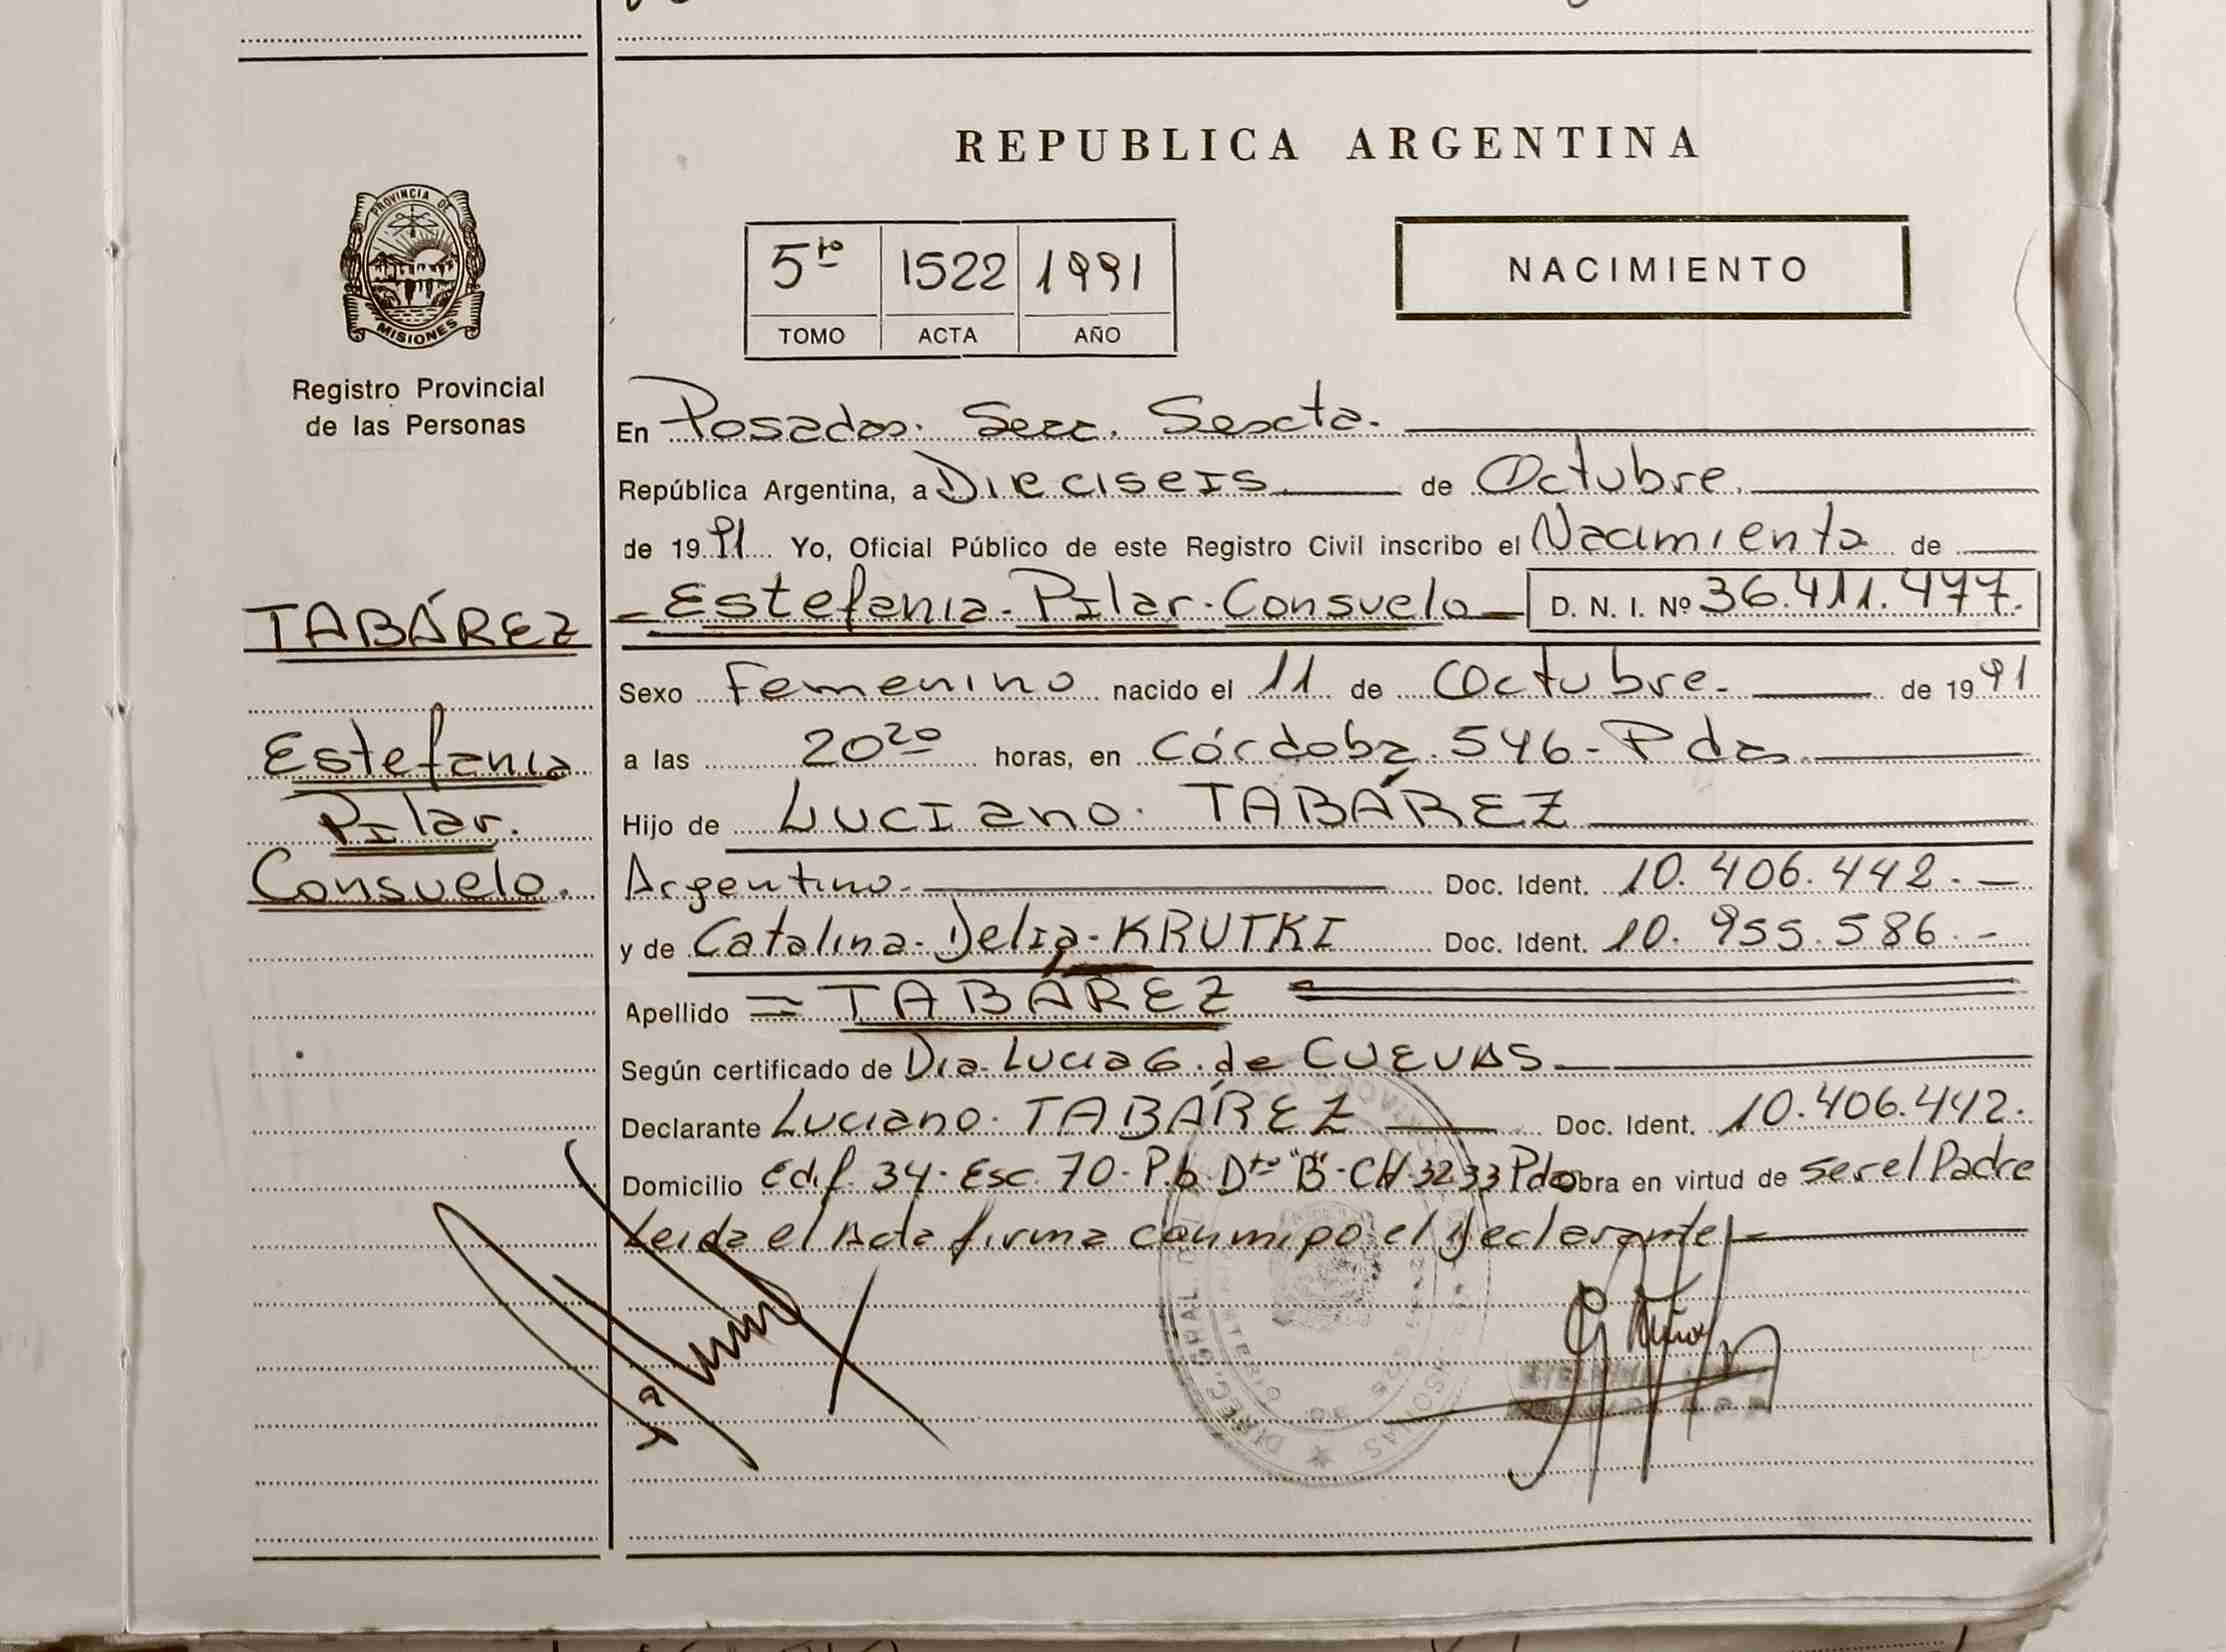 REPUBLICA ARGENTINA
PROVINCIA DE
MISIONES
Registro Provincial
de las Personas
5to 1522 1991
TOMO ACTA AÑO
NACIMIENTO
En Posadas. Secc. Sexcta.
República Argentina, a Dieciseis de Octubre.
de 1991 Yo, Oficial Público de este Registro Civil inscribo el Nacimiento de
TABÁREZ
Estefania. Pilar. Consuelo D. N. I. Nº 36.411.477.
Sexo Femenino nacido el 11 de Octubre. de 1991
Estefania
a las 20 20 horas, en Córdoba. 546 - Pdas.
Pilar.
Hijo de Luciano. TABÁREZ
Consuelo.
Argentino. Doc. Ident. 10.406.442. -
y de Catalina. Delia. KRUTKI Doc. Ident. 10.955.586. -
Apellido = TABÁREZ
Según certificado de Dra. Lucia G. de CUEVAS
Declarante Luciano. TABÁREZ Doc. Ident. 10.406.442.
Domicilio Edif. 34. Esc. 70. P.b. Dto "B". CH. 3233 Pdas obra en virtud de ser el Padre
Leida el Acta firma conmigo el Declarante